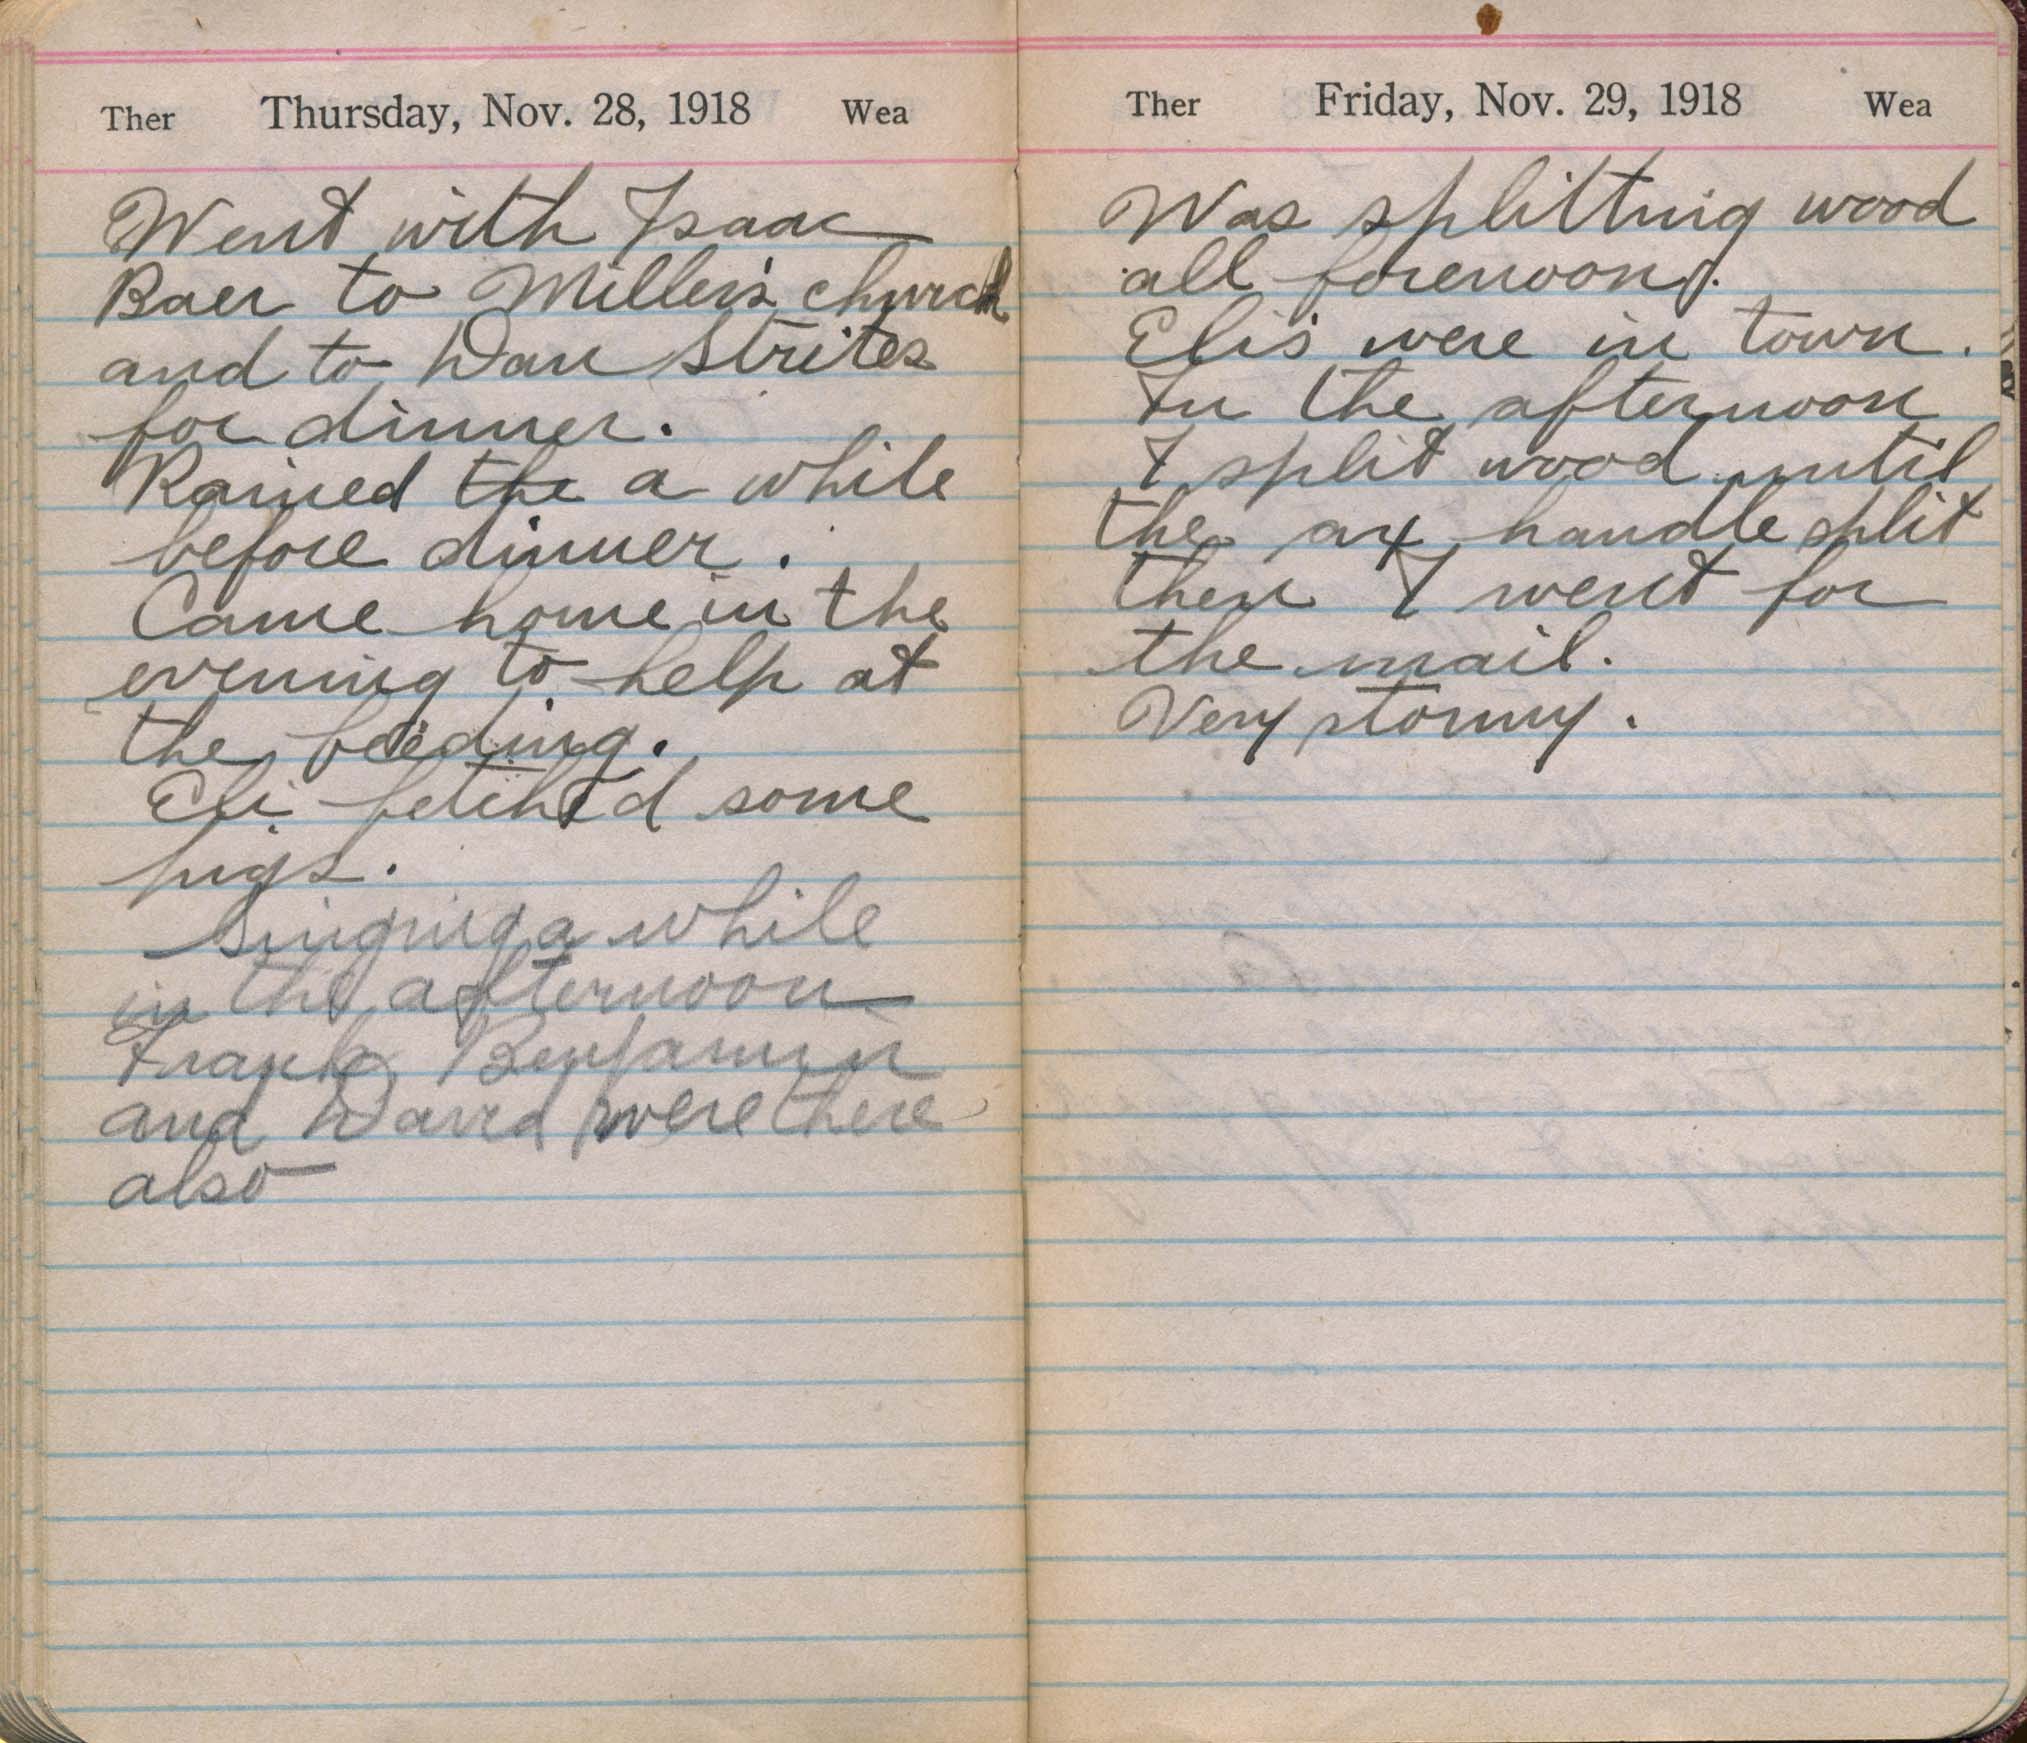 Ther Thursday, Nov. 28, 1918 Wea
Went with Isaac
Baer to Miller's church
and to Dan Strites
for dinner.
Rained the a while
before dinner.
Came home in the
evening to help at
the feeding.
Eli fetched some
pigs.
Singing a while
in the afternoon
Frank, Benjamin
and David were there
also
Ther Friday, Nov. 29, 1918 Wea
Was splitting wood
all forenoon.
Eli's were in town.
In the afternoon
I split wood until
the ax handle split
then I went for
the mail.
Very stormy.